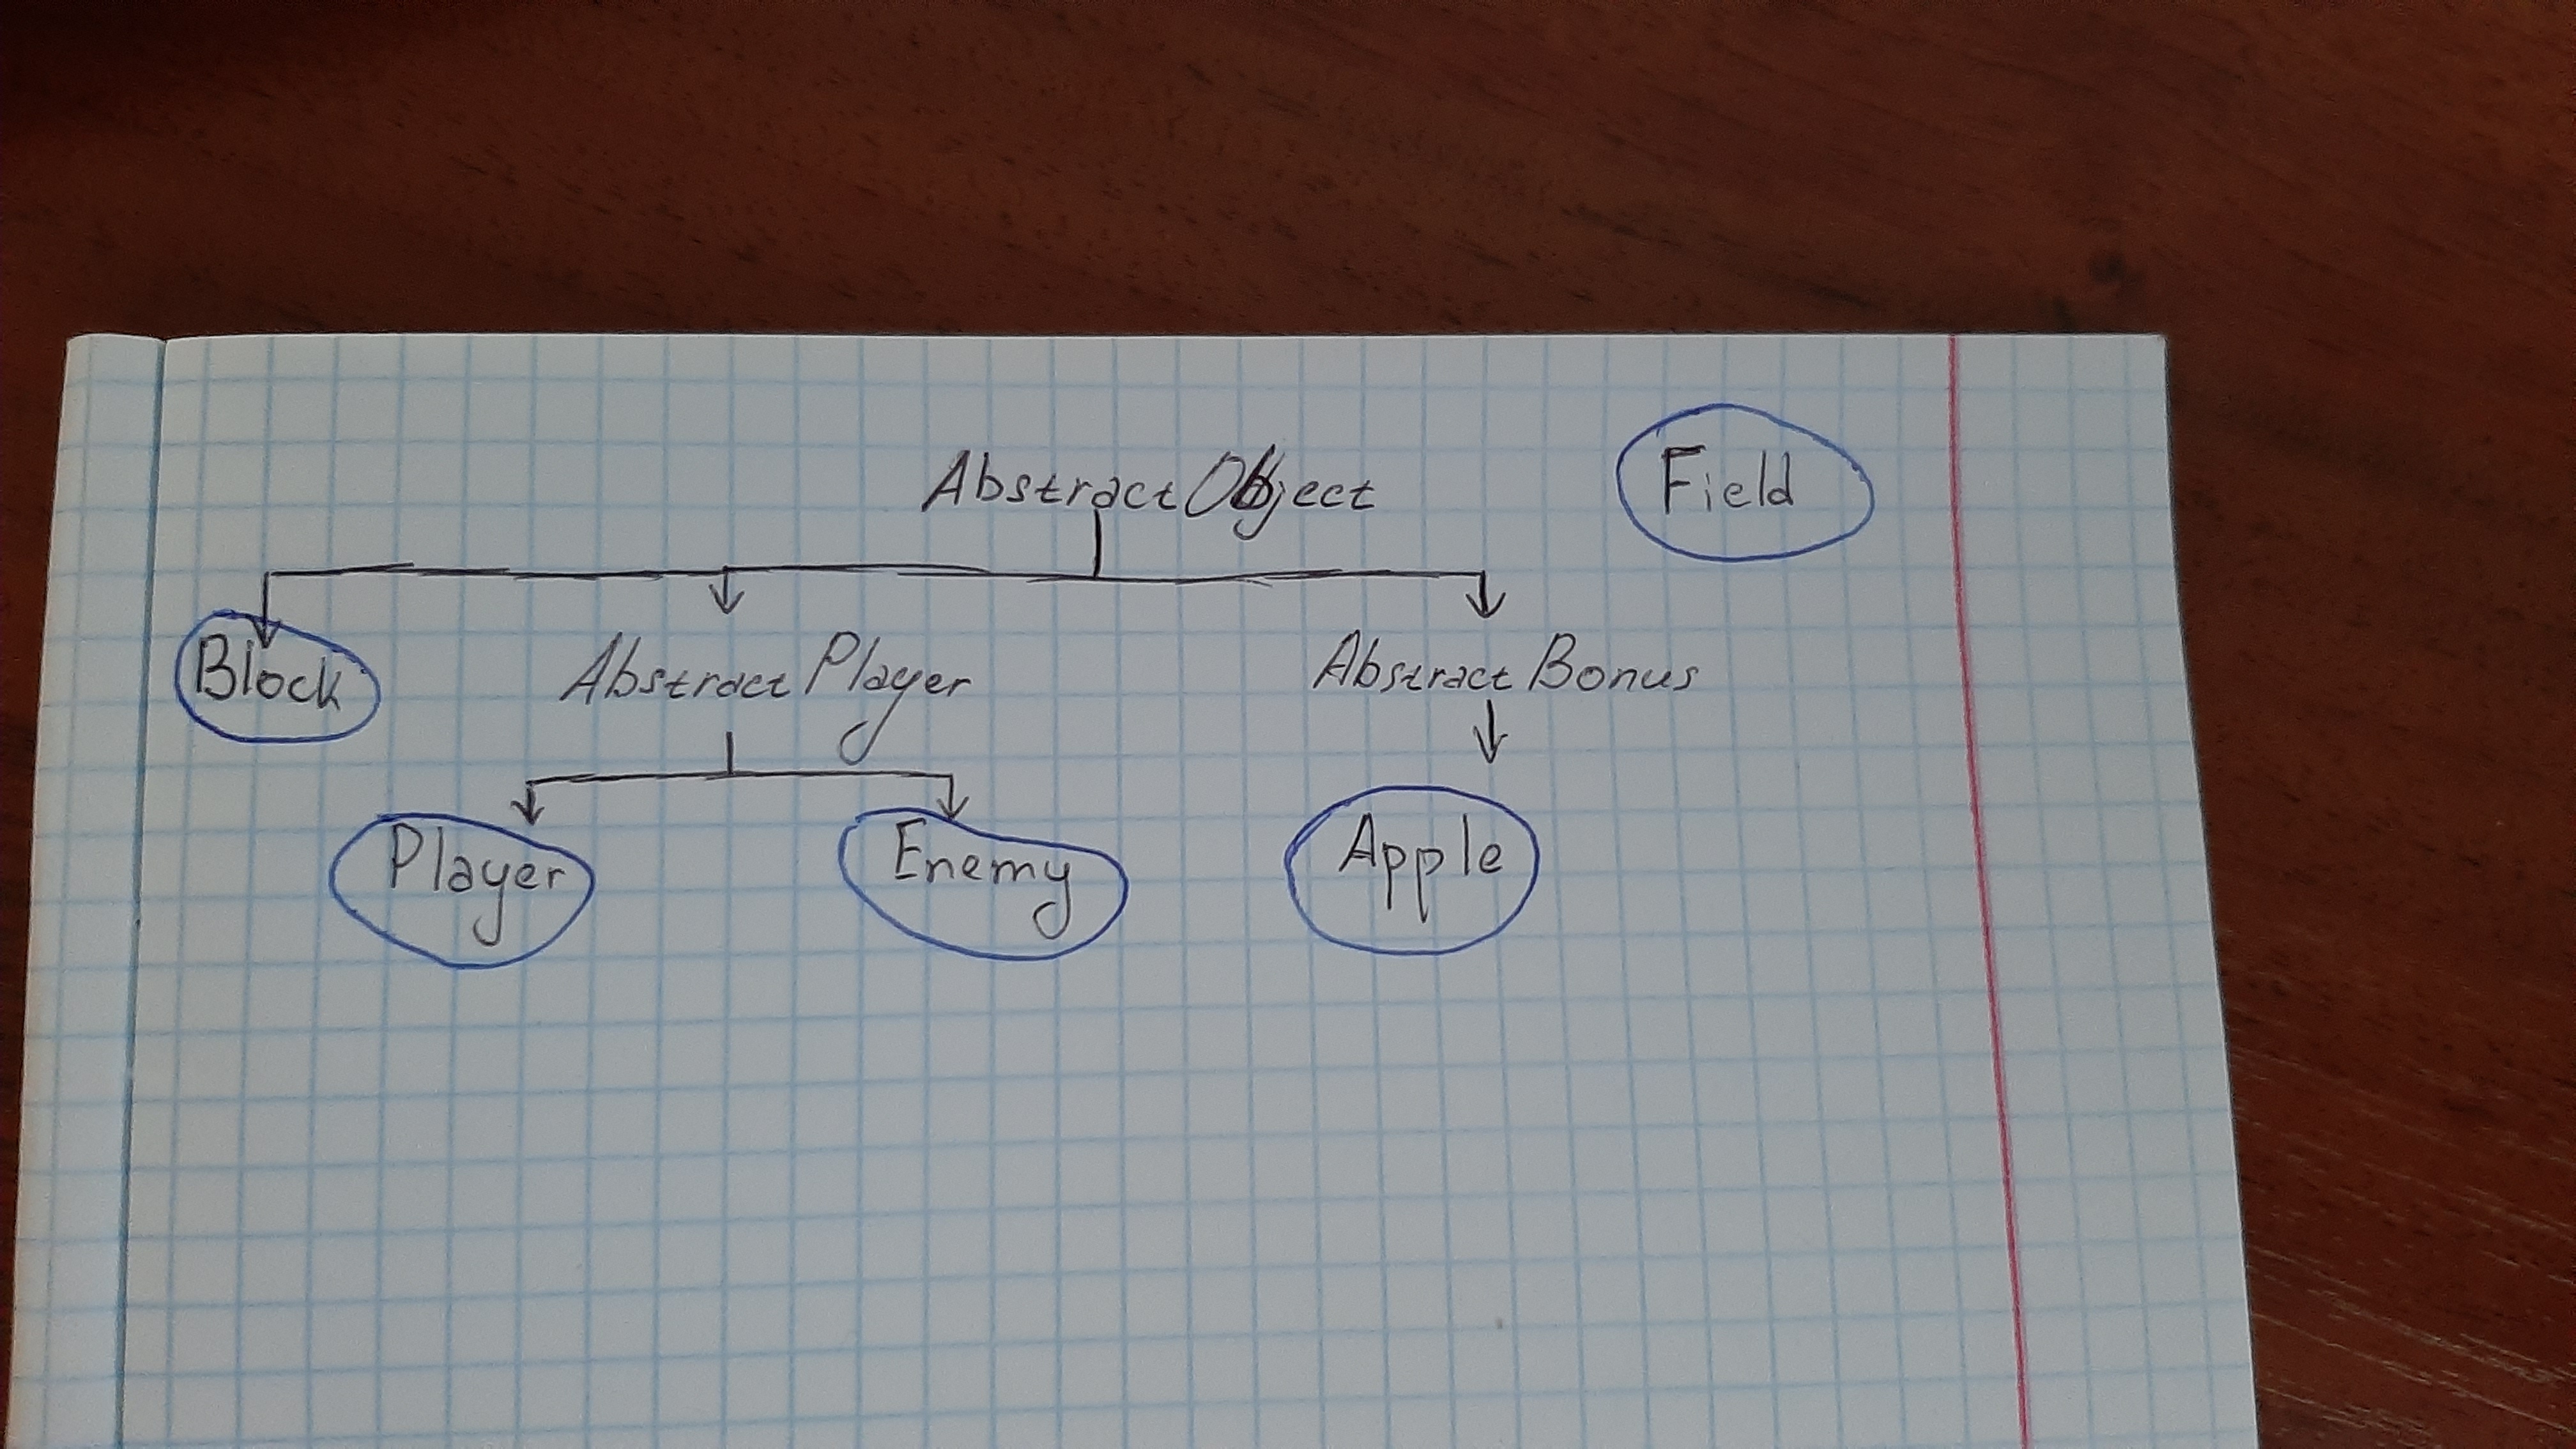 AbstractObject Field
Block AbstractPlayer AbstractBonus
Player Enemy Apple